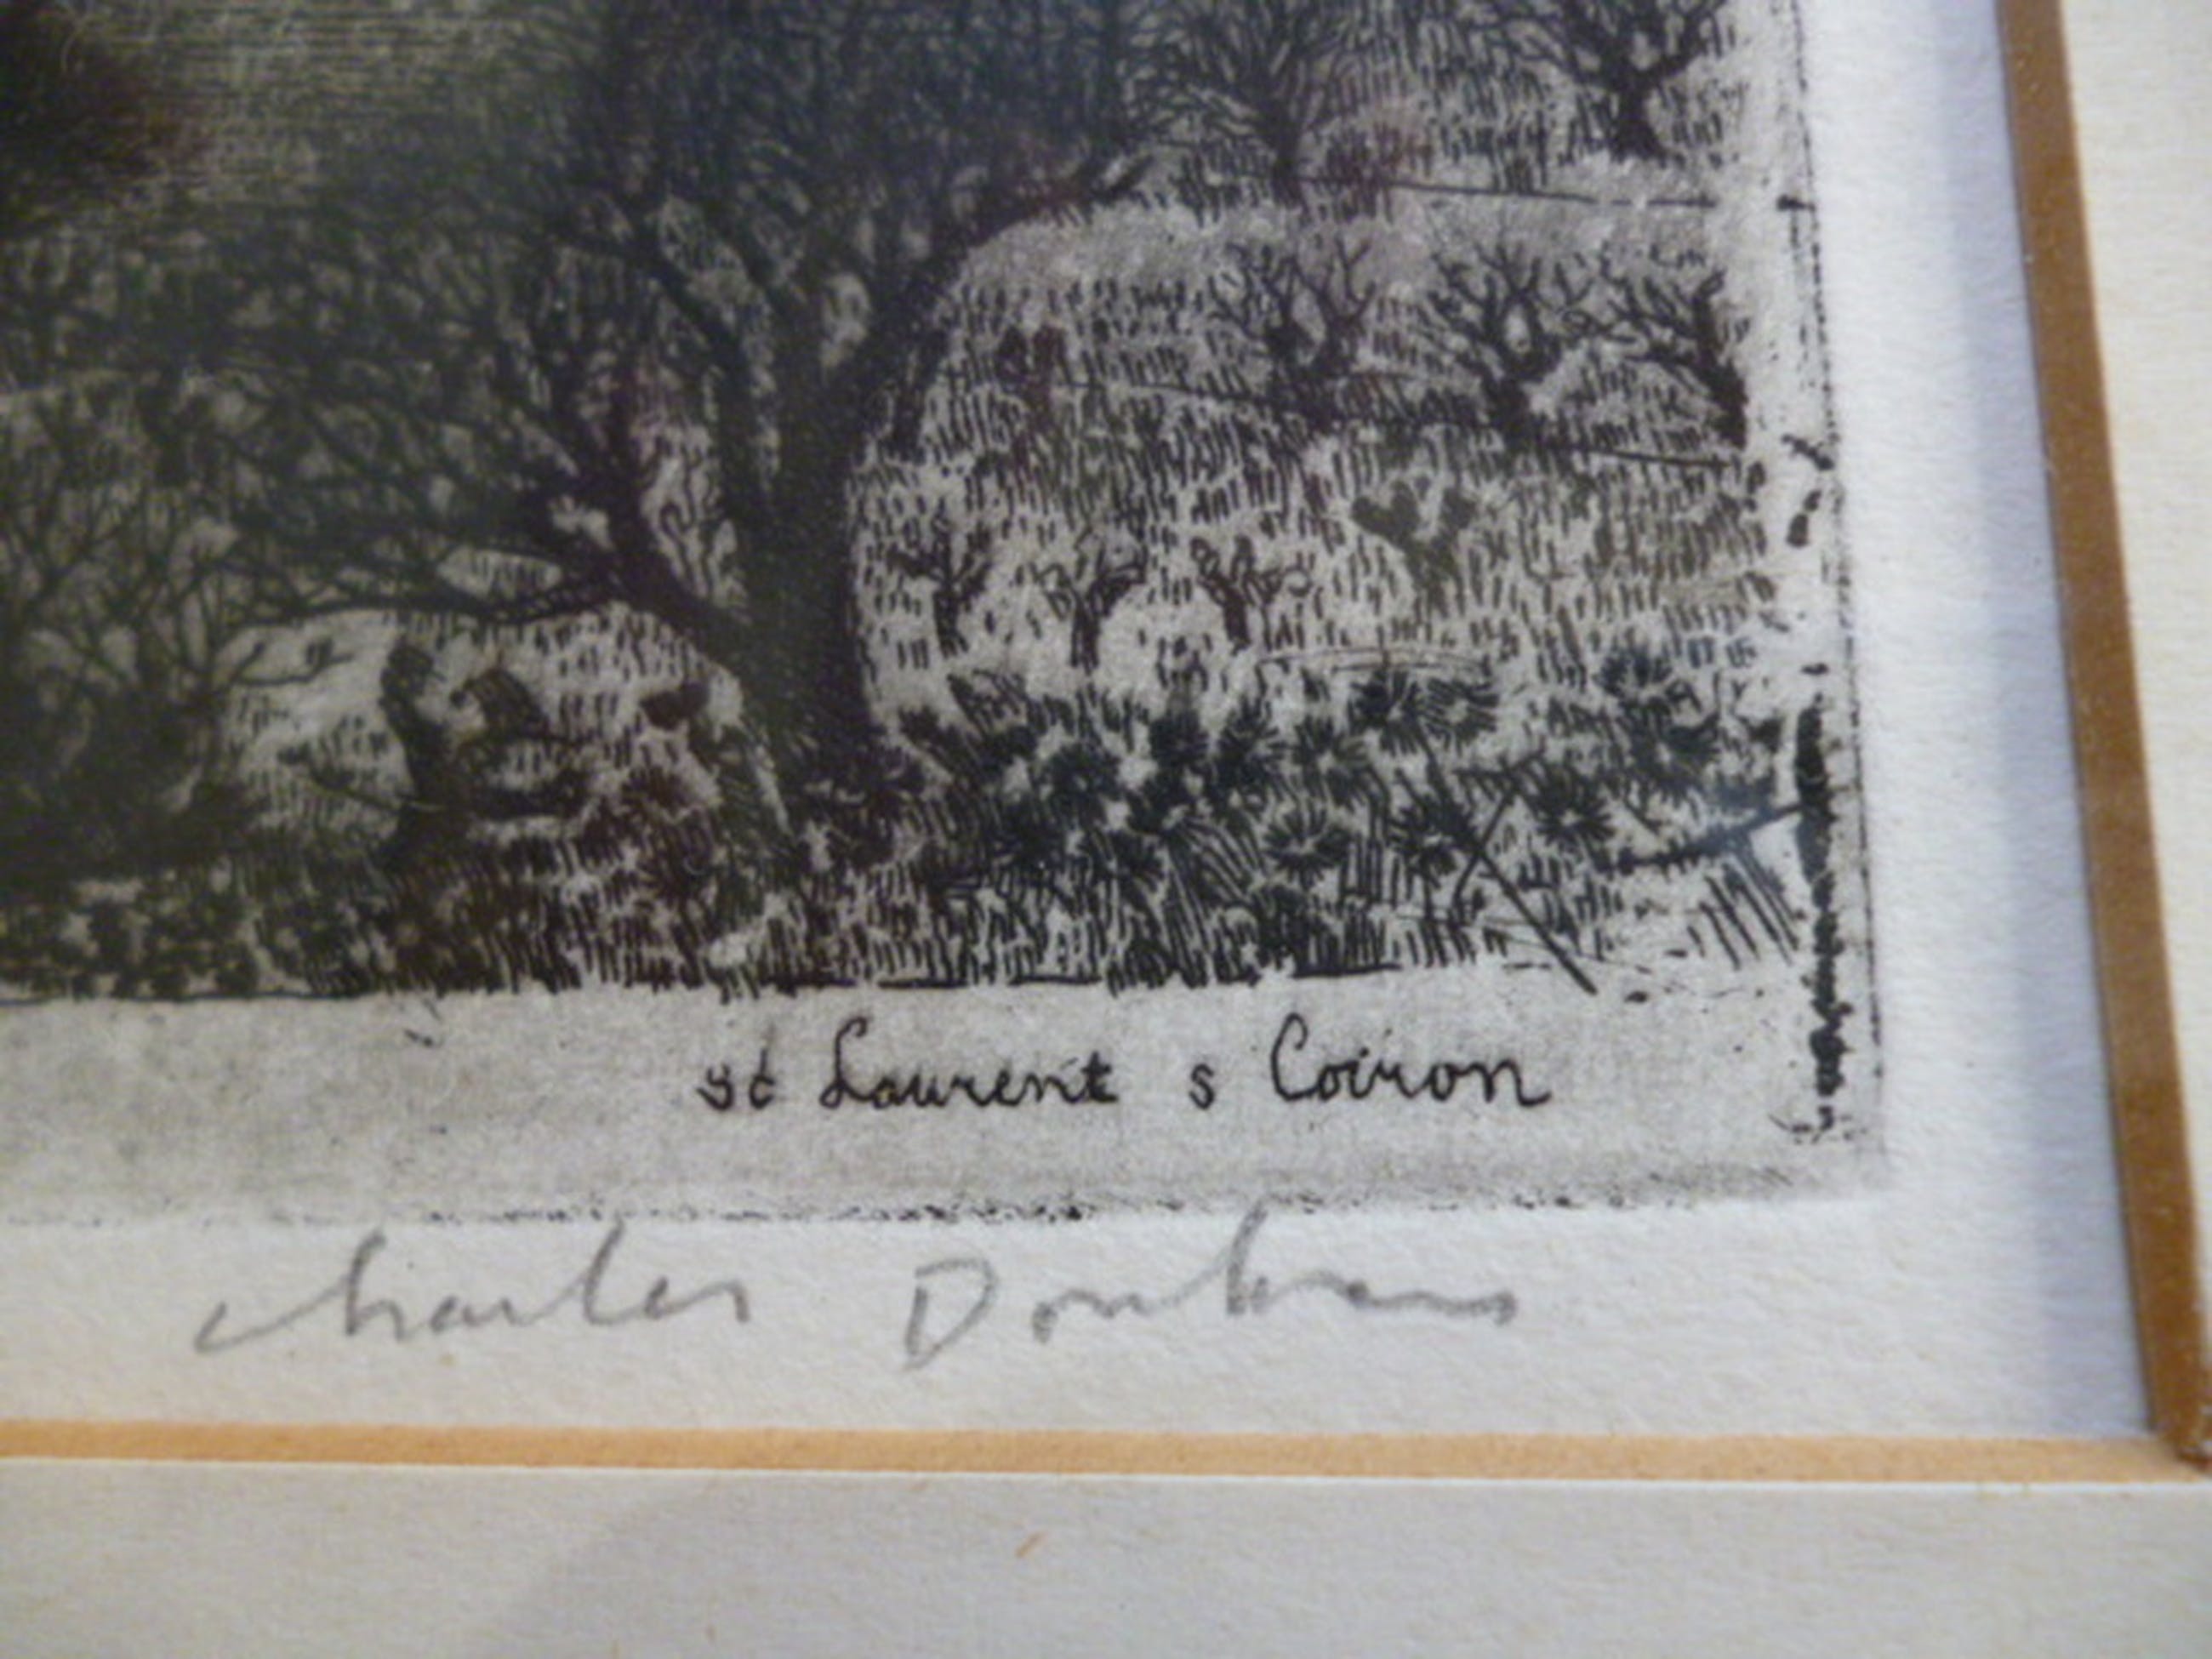 st Laurent s Coiron
Charles Donkers